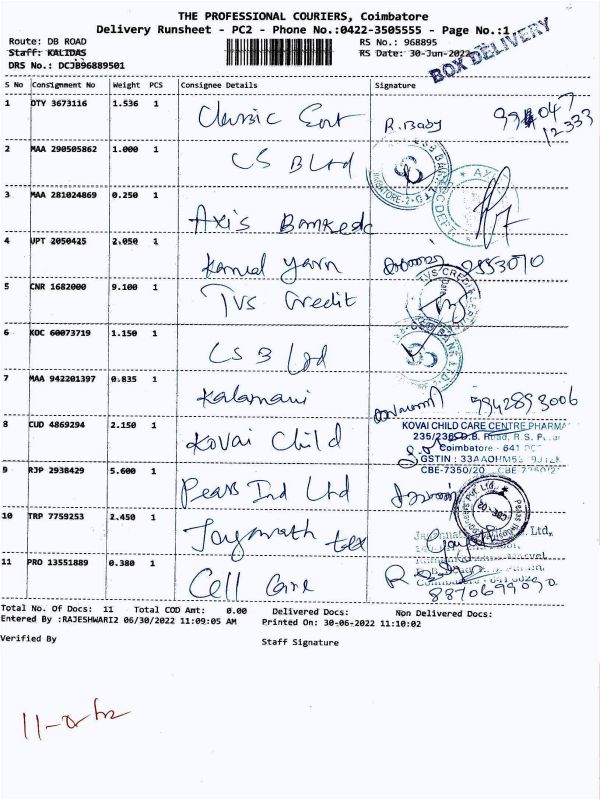 THE PROFESSIONAL COURIERS, Coimbatore
Delivery Runsheet - PC2 - Phone No.:0422-3505555 - Page No.:1
Route: DB ROAD RS No.: 968895
Staff: KALIDAS RS Date: 30-Jun-2022
DRS No.: DCJB96889501
BOX DELIVERY
S No Consignment No Weight PCS Consignee Details Signature
1 DTY 3673116 1.536 1 Classic R.Baby
12333
2 MAA 290505862 1.000 1 CS B Ltd
3 MAA 281024869 0.250 1 Axis
4 UPT 2050425 2.050 1 Kamal yarn
5 CNR 1682000 9.100 1 TVS Credit
TVS CREDIT
6 KOC 60073719 1.150 1 CS B Ltd
7 MAA 942201397 0.835 1 Kalamani 9942893006
8 CUD 4869294 2.150 1 Kovai Child
KOVAI CHILD CARE CENTRE PHARMA
235/236 D.B. Road, R.S.
Coimbatore - 641
GSTIN : 33AAOHM
CBE-7350/20
9 RJP 2938429 5.600 1 Pears Ind Ltd
10 TRP 7759253 2.450 1 tex
11 PRO 13551889 0.380 1 Cell Care
8870699070
Total No. Of Docs: 11 Total COD Amt: 0.00 Delivered Docs: Non Delivered Docs:
Entered By :RAJESHWARI2 06/30/2022 11:09:05 AM Printed On: 30-06-2022 11:10:02
Verified By Staff Signature